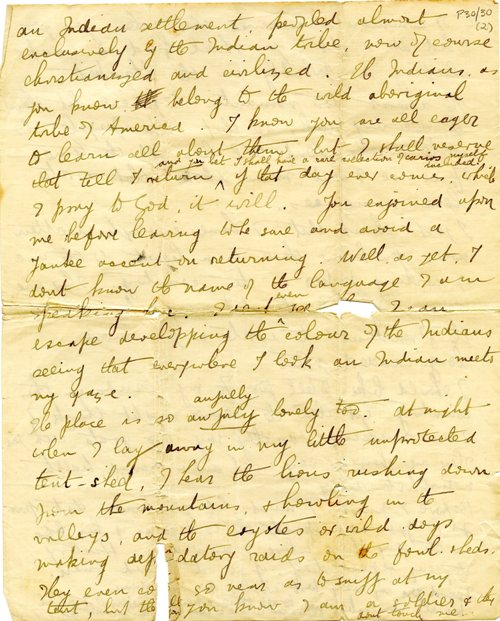 P30/30
(2)
an Indian settlement, peopled almost
exclusively by the Indian tribe, now of course
christianized and civilized. The Indians, as
you know belong to the wild aboriginal
tribe of America. I know you are all eager
to learn all about them but I shall reserve
and you bet I shall have a rare collection of curios, myself included
that till I return, if that day ever comes, which
I pray to God, it will. You enjoined upon
me before leaving to be sure and avoid a
Yankee accent on returning. Well, as yet, I
dont know the name of the language I am
speaking here. even I can
escape developping the colour of the Indians
seeing that everywhere I look an Indian meets
my gaze.
awfully
The place is so awfuly lonely too. At night
when I lay away in my little unprotected
tent-shed, I hear the lions rushing down
from the mountains, & howling in the
valleys, and the coyotes or wild dogs
making depredatory raids on the fowl-sheds.
They even so near as to sniff at my
tent, but you know I am a soldier & they
dont touch me.